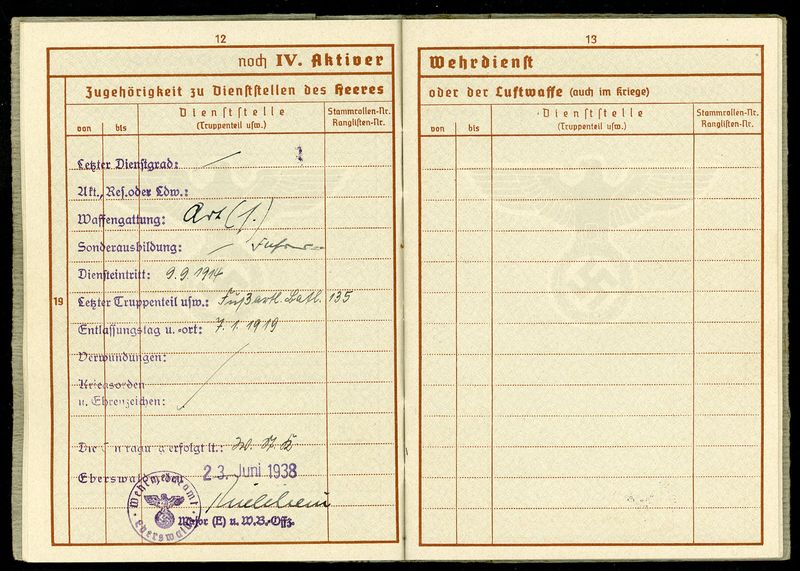 12
noch IV. Aktiver
Zugehörigkeit zu Dienststellen des Heeres
von
bis
Dienststelle
(Truppenteil usw.)
Stammrollen-Nr.
Ranglisten-Nr.
Letzter Dienstgrad:
Akt., Res. oder Ldw.:
Waffengattung: Art (1.)
Sonderausbildung:
Diensteintritt: 9.9.1914
19
Letzter Truppenteil usw.: Fußartl. Batl. 135
Entlassungstag u. -ort: 7.1.1919
Verwundungen:
Kriegsorden
u. Ehrenzeichen:
Die erfolgt lt.: W. St. K
Eberswalde, den 23. Juni 1938
Wehrmeldeamt
Eberswalde
Major (E) u. W.B.-Offz.
13
Wehrdienst
oder der Luftwaffe (auch im Kriege)
von
bis
Dienststelle
(Truppenteil usw.)
Stammrollen-Nr.
Ranglisten-Nr.